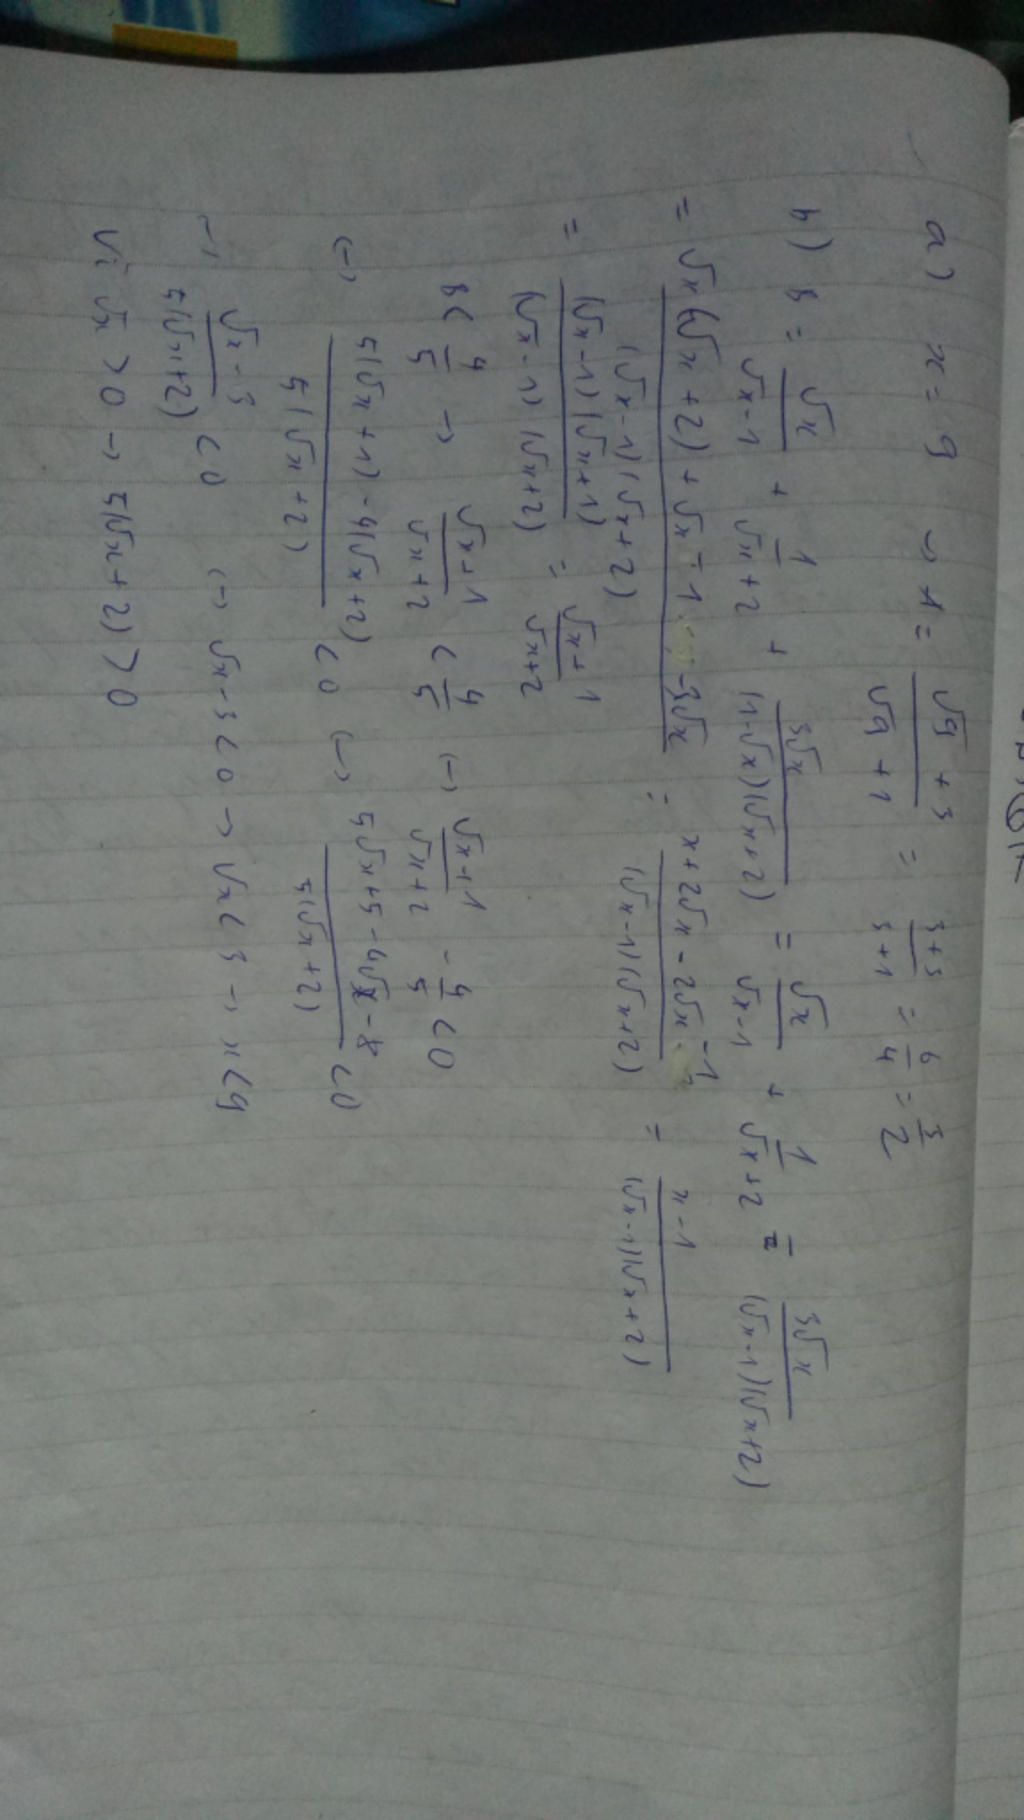 a) x = 9 → A = (√9 + 3)/(√9 + 1) = (3+3)/(3+1) = 6/4 = 3/2
b) B = √x/(√x-1) + 1/(√x+2) + 3√x/((1-√x)(√x+2)) = √x/(√x-1) + 1/(√x+2) - 3√x/((√x-1)(√x+2))
= (√x(√x+2) + √x - 1 - 3√x)/((√x-1)(√x+2)) = (x+2√x-2√x-1)/((√x-1)(√x+2)) = (x-1)/((√x-1)(√x+2))
= ((√x-1)(√x+1))/((√x-1)(√x+2)) = (√x+1)/(√x+2)
B < 4/5 → (√x+1)/(√x+2) < 4/5 (→ (√x+1)/(√x+2) - 4/5 < 0
(→ (5(√x+1)-4(√x+2))/(5(√x+2)) < 0 (→ (5√x+5-4√x-8)/(5(√x+2)) < 0
→ (√x-3)/(5(√x+2)) < 0 (→ √x-3 < 0 → √x < 3 → x < 9
Vì √x > 0 → 5(√x+2) > 0